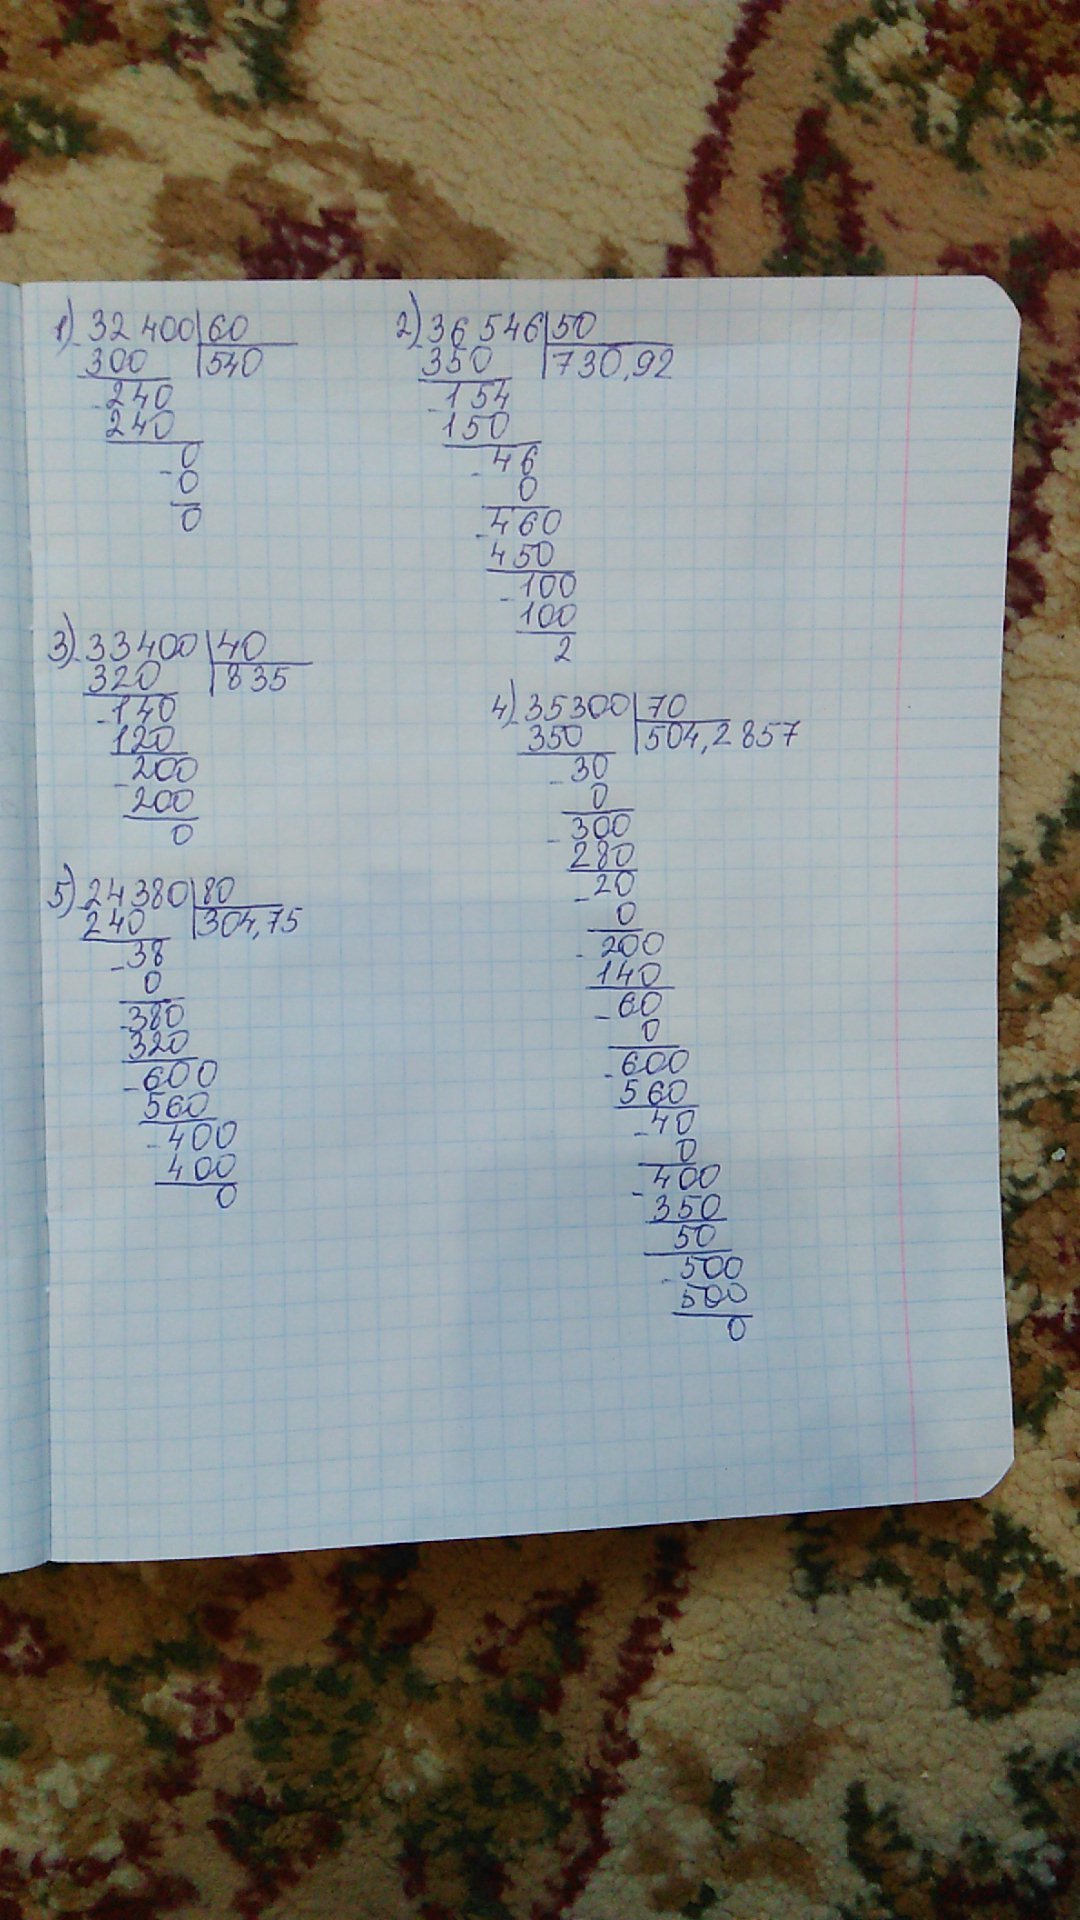 1) 32 400 | 60
300 | 540
- 240
240
0
- 0
0
2) 36 546 | 50
350 | 730,92
- 154
150
- 46
0
- 460
450
- 100
100
2
3) 33400 | 40
320 | 835
- 140
120
- 200
200
0
4) 35300 | 70
350 | 504,2857
- 30
0
- 300
280
- 20
0
- 200
140
- 60
0
- 600
560
- 40
0
- 400
350
50
- 500
500
0
5) 24380 | 80
240 | 304,75
- 38
0
- 380
320
- 600
560
- 400
400
0